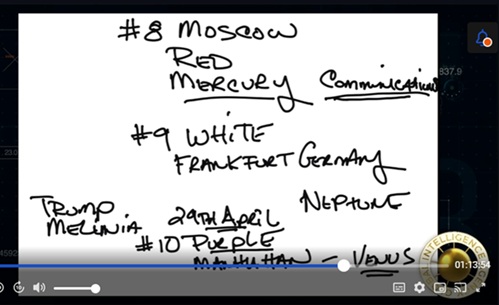 #8 MOSCOW
RED
MERCURY COMMUNICATION
837.9
#9 WHITE
23.0
FRANKFURT GERMANY
NEPTUNE
TRUMP
MELINIA
29TH APRIL
#10 PURPLE
4592
VENUS
INTELLIGENCE
01:13:54